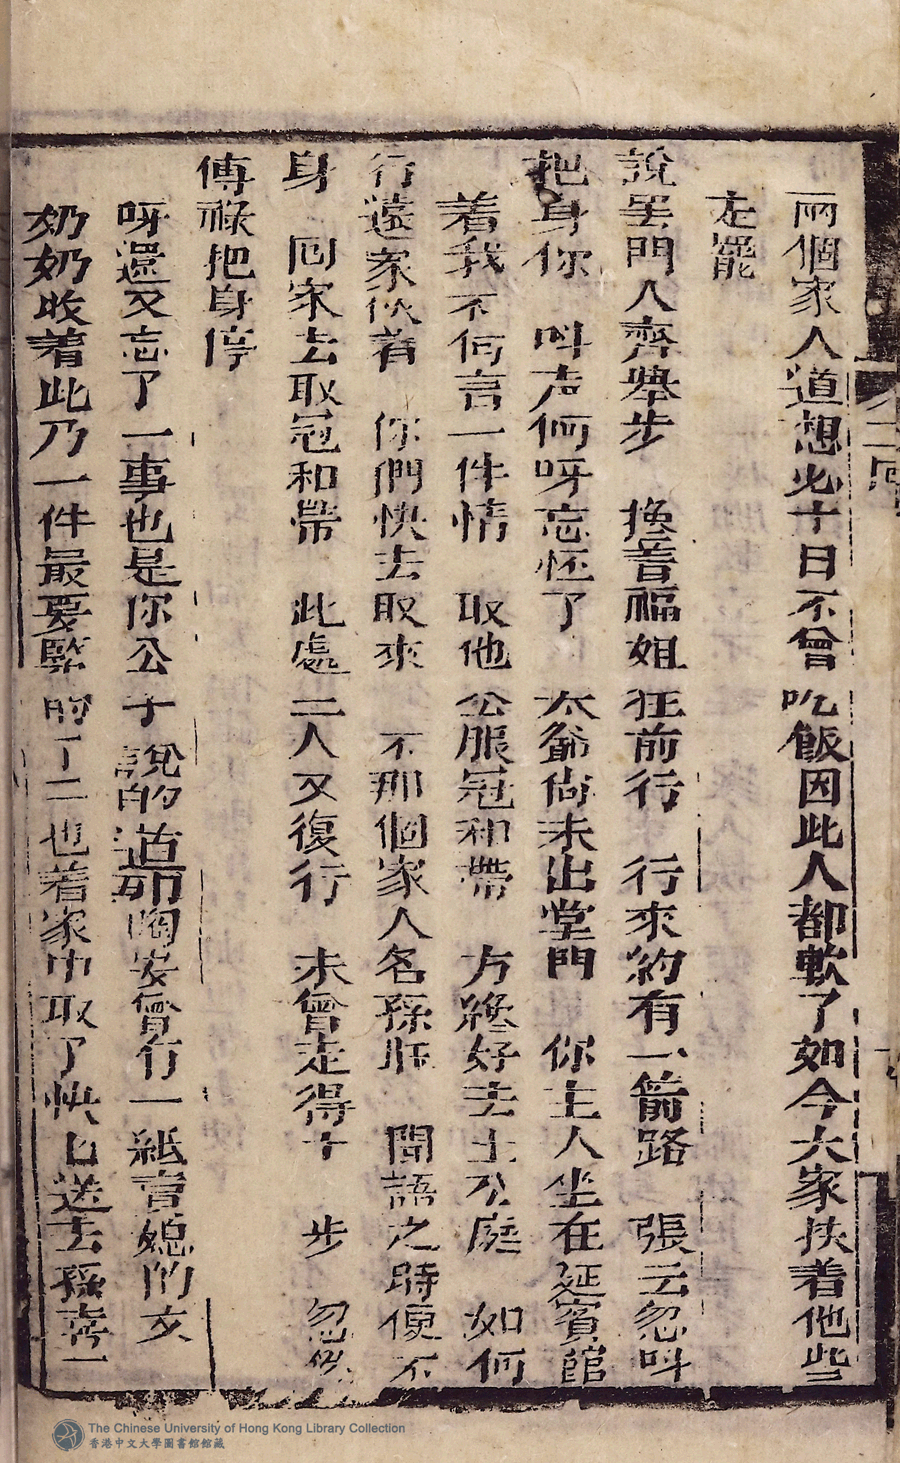 兩個家人道想必十日不曾吃飯因此人都軟了如今大家扶着他些
走罷
說罢門人齊舉步 攙着福姐狂前行 行來約有一箭路 張云忽叫
把身你 叫声何呀忘怀了 太爺尚未出堂門 你主人坐在延賓舘
着我不何言一件情 取他公服冠和帶 方纔好去上公庭 如何
行遠家伙着 你們快去取來 不那個家人名孫旺 聞語之時便不
身 囘家去取冠和帶 此處二人又復行 未曾走得十 步 忽然
傅祿把身停
呀還又忘了一事也是你公子說的道印陶安曾行一紙言媳的文
奶奶收着此乃一件最要緊的了二也着家中取了快匕送去孫喜一
二回
The Chinese University of Hong Kong Library Collection
香港中文大學圖書館館藏